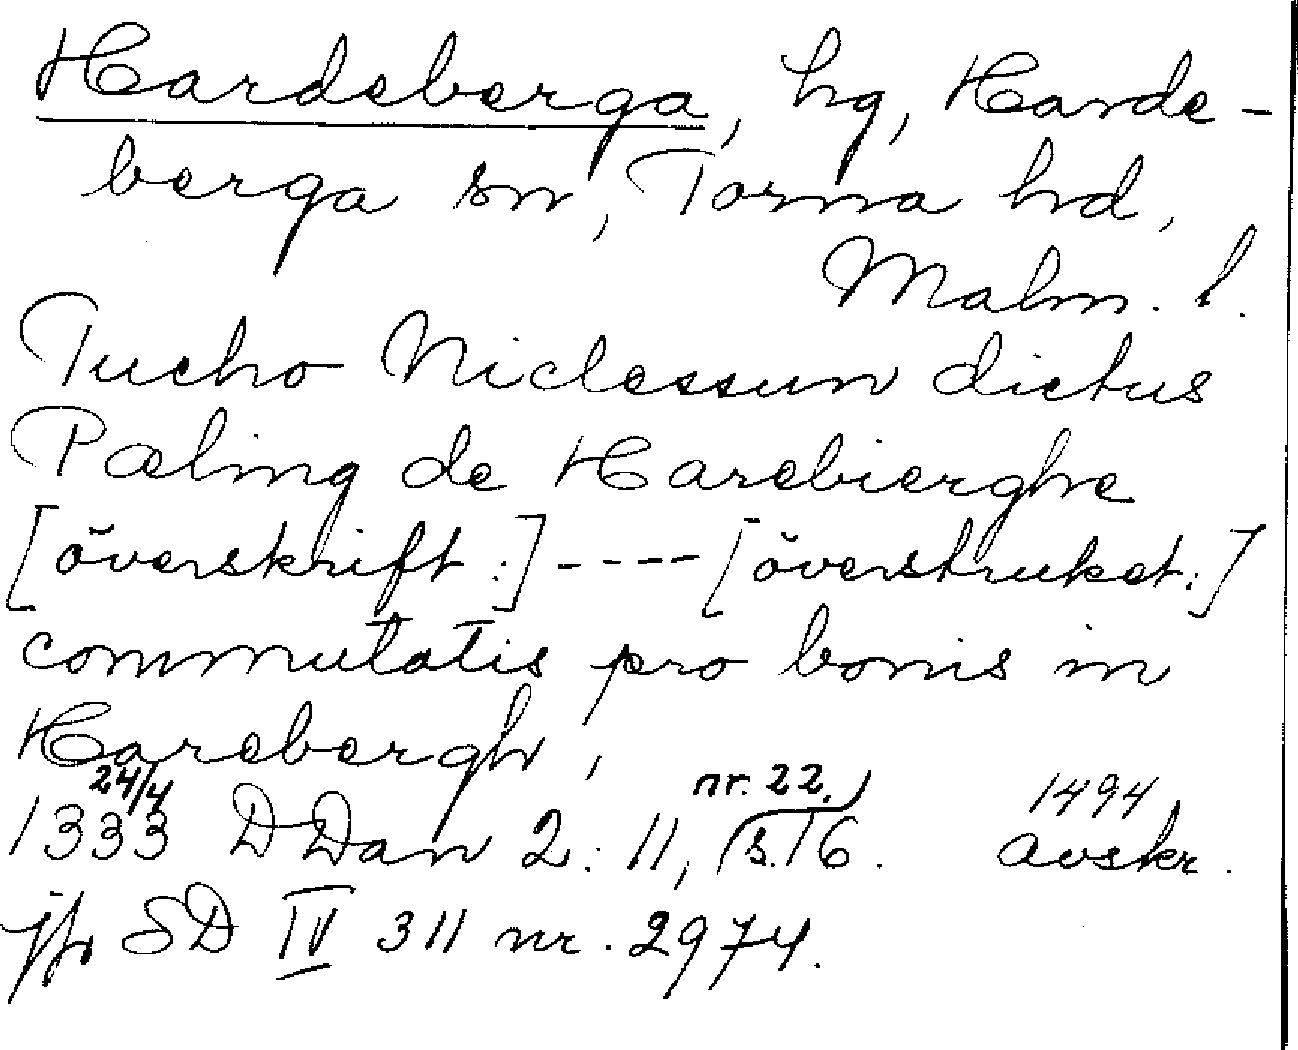 Hardeberga, hg, Harde-
berga sn, Torna hd,
Malm. l.
Tucho Niclessun dictus
Pæling de Harebierghe
[överskrift:] ---- [överstruket:]
commutatis pro bonis in
Harebergh,
24/4 nr. 22. 1494
1333 DDan 2:11, s. 16. avskr.
jfr SD IV 311 nr. 2974.